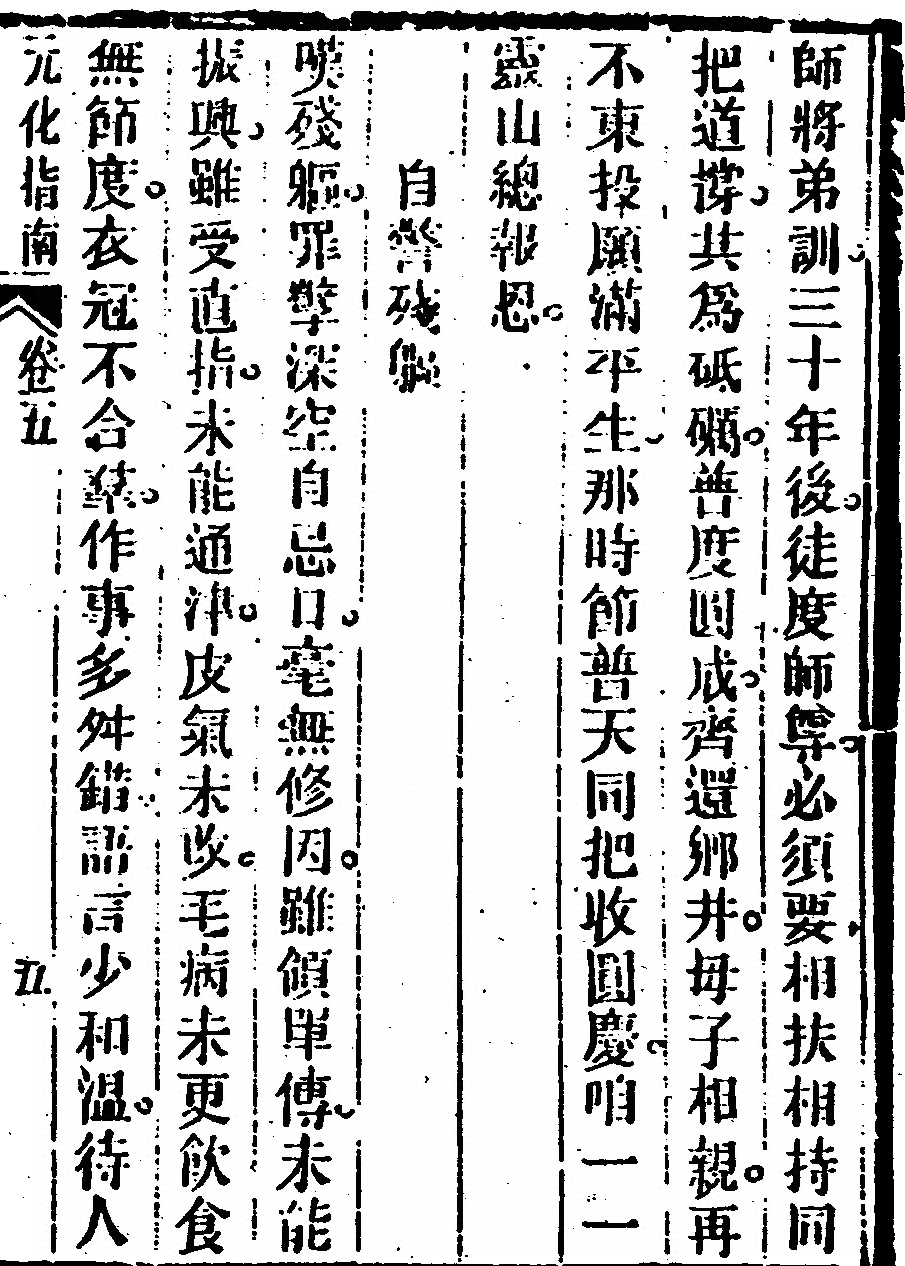 師將弟訓三十年後徒度師尊必須要相扶相持同
把道撐共爲砥礪普度圓成齊還鄉井母子相親再
不東投願滿平生那時節普天同把收圓慶咱一一
靈山總報恩
自警殘軀
嘆殘軀罪孽深空自忌口毫無修因雖領單傳未能
振興雖受直指未能通津皮氣未改毛病未更飲食
無節度衣冠不合羣作事多舛錯語言少和溫待人
元化指南
卷五
五